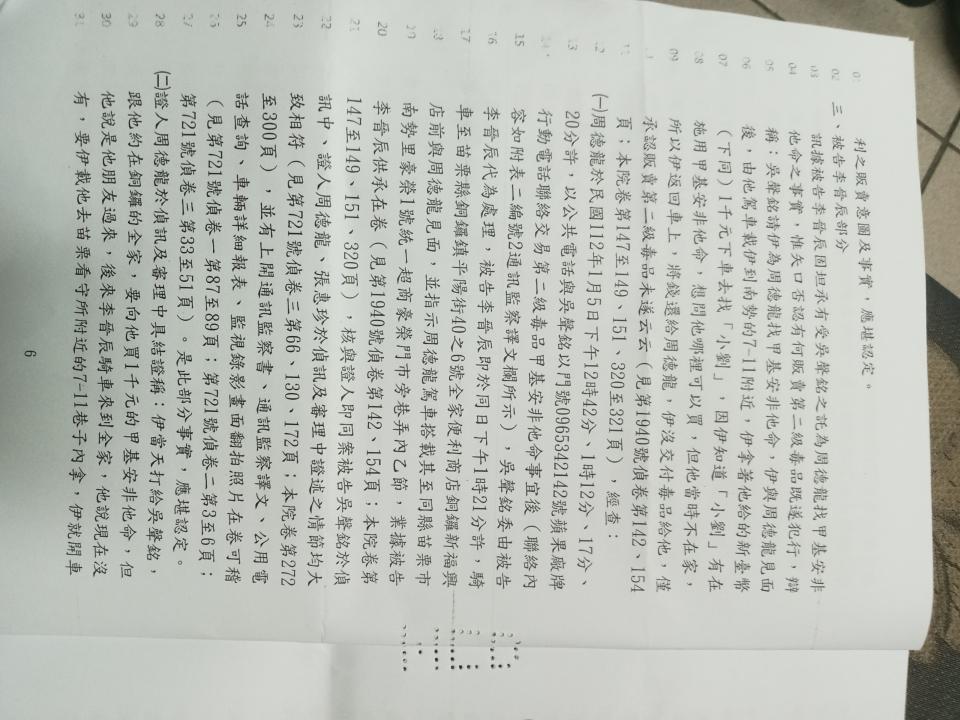 01 利之販賣意圖及事實，應堪認定。
02 三、被告李晉辰部分
03 訊據被告李晉辰固坦承有受吳聲銘之託為周德龍找甲基安非
04 他命之事實，惟矢口否認有何販賣第二級毒品既遂犯行，辯
05 稱：吳聲銘請伊為周德龍找甲基安非他命，伊與周德龍見面
06 後，由他駕車載伊到南勢的7-11附近，伊拿著他給的新臺幣
07 （下同）1千元下車去找「小劉」，因伊知道「小劉」有在
08 施用甲基安非他命，想問他哪裡可以買，但他當時不在家，
09 所以伊返回車上，將錢還給周德龍，伊沒交付毒品給他，僅
承認販賣第二級毒品未遂云云（見第1940號偵卷第142、154
11 頁；本院卷第147至149、151、320至321頁），經查：
12 ㈠周德龍於民國112年1月5日下午12時42分、1時12分、17分、
13 20分許，以公共電話與吳聲銘以門號0965342142號蘋果廠牌
14 行動電話聯絡交易第二級毒品甲基安非他命事宜後（聯絡內
15 容如附表二編號2通訊監察譯文欄所示），吳聲銘委由被告
16 李晉辰代為處理，被告李晉辰即於同日下午1時21分許，騎
17 車至苗栗縣銅鑼鎮平陽街40之6號全家便利商店銅鑼新福興
18 店前與周德龍見面，並指示周德龍駕車搭載其至同縣苗栗市
19 南勢里豪榮1號統一超商豪榮門市旁巷弄內乙節，業據被告
20 李晉辰供承在卷（見第1940號偵卷第142、154頁；本院卷第
21 147至149、151、320頁），核與證人即同案被告吳聲銘於偵
22 訊中、證人周德龍、張惠珍於偵訊及審理中證述之情節均大
23 致相符（見第721號偵卷三第66、130、172頁；本院卷第272
24 至300頁），並有上開通訊監察書、通訊監察譯文、公用電
25 話查詢、車輛詳細報表、監視錄影畫面翻拍照片在卷可稽
26 （見第721號偵卷一第87至89頁；第721號偵卷二第3至6頁；
27 第721號偵卷三第33至51頁）。是此部分事實，應堪認定。
28 ㈡證人周德龍於偵訊及審理中具結證稱：伊當天打給吳聲銘，
29 跟他約在銅鑼的全家，要向他買1千元的甲基安非他命，但
30 他說是他朋友過來，後來李晉辰騎車來到全家，他說現在沒
31 有，要伊載他去苗栗看守所附近的7-11巷子內拿，伊就開車
6